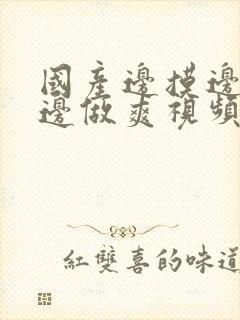 國產邊摸邊
邊做爽視頻
紅雙喜的味道